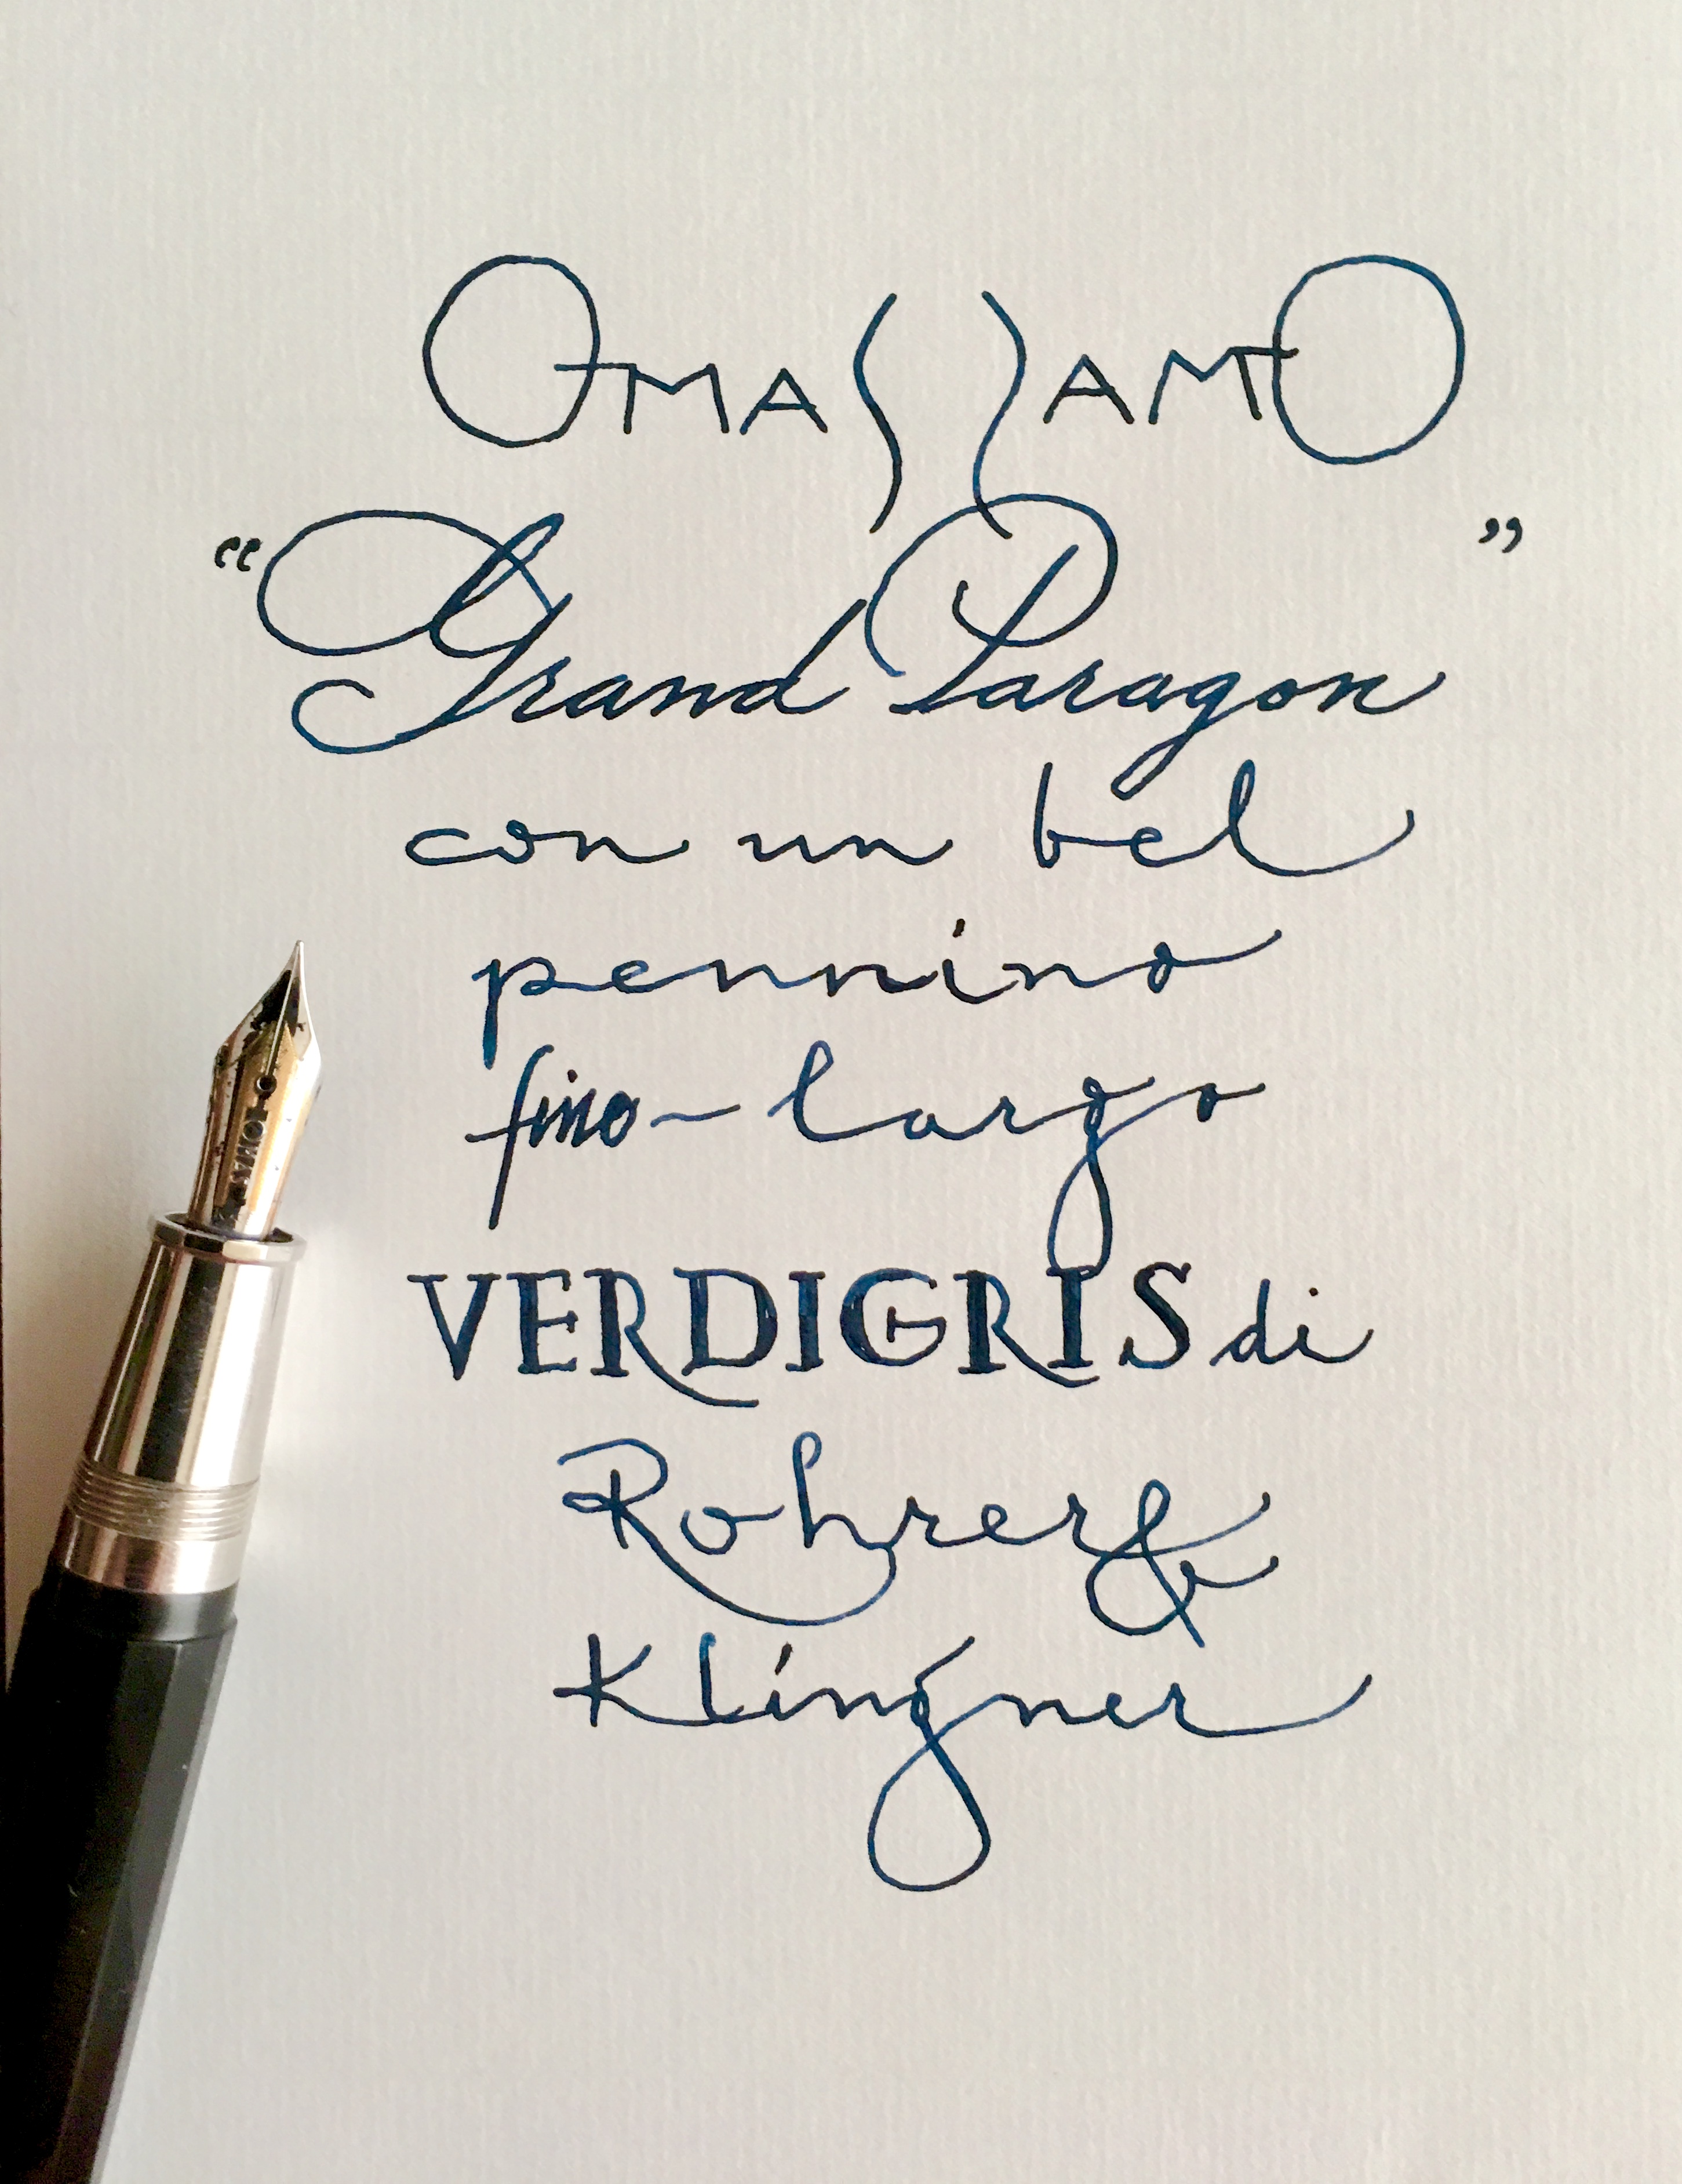 OMAS SAMO
“Grand Paragon”
con un bel
pennino
fino-largo
VERDIGRIS di
Rohrer &
Klingner